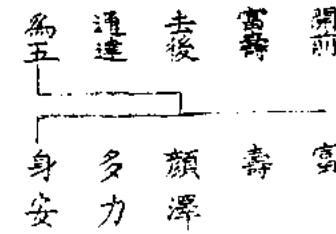 開前
富壽
去後
通達
為五
富
壽
顔澤
多力
身安